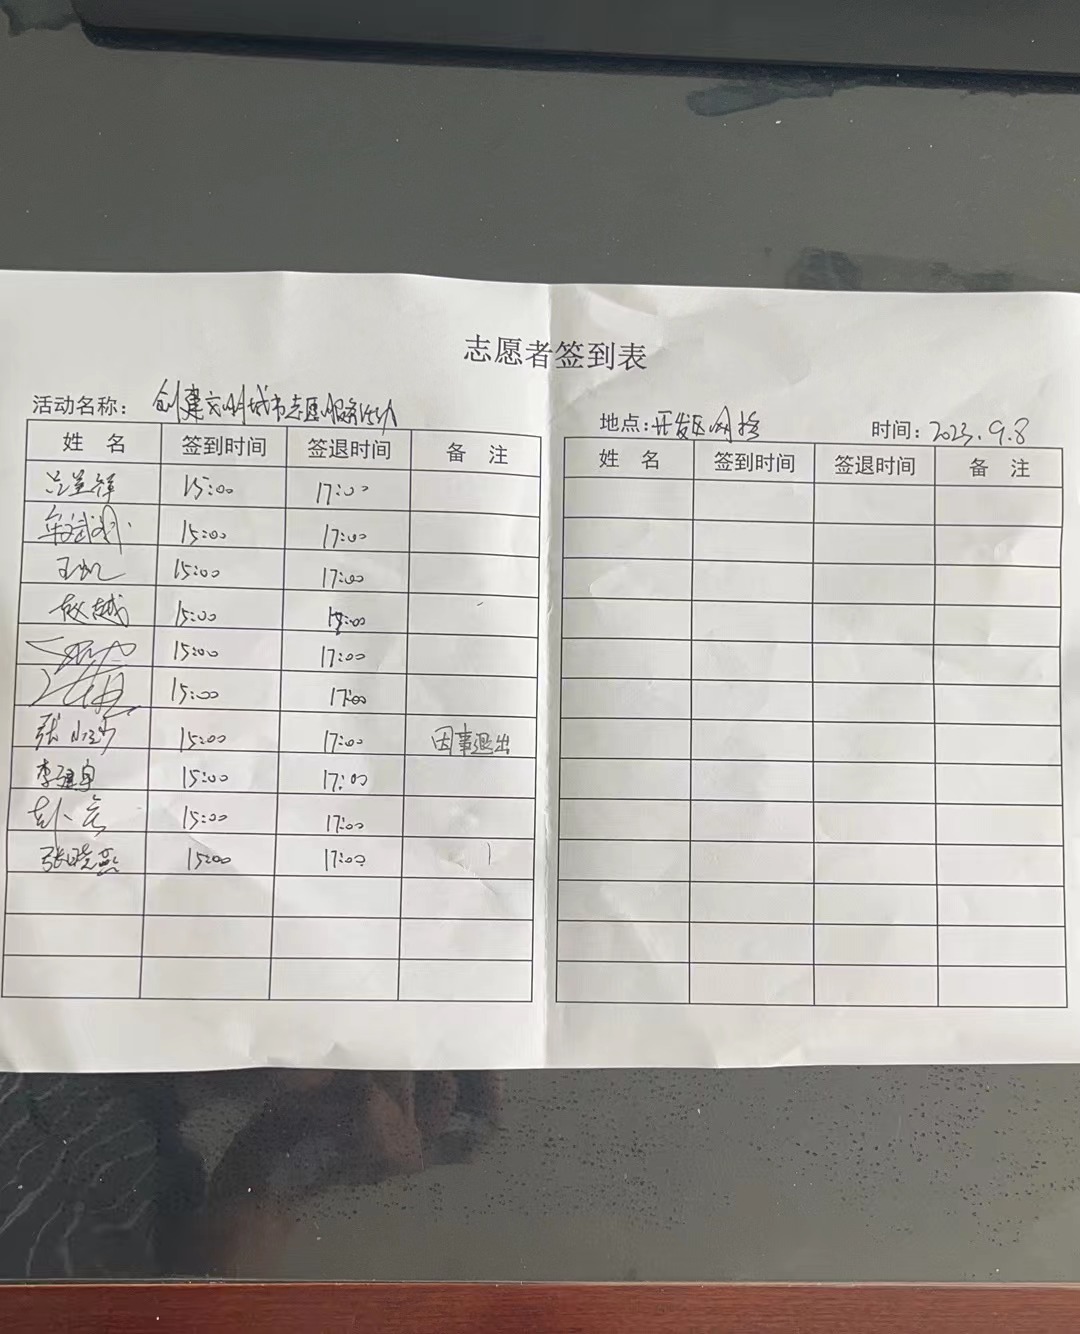 志愿者签到表
活动名称： 创建文明城市志愿服务活动
地点：开发区网格 时间：2023.9.8
姓 名 签到时间 签退时间 备 注
姓 名 签到时间 签退时间 备 注
15:00 17:00
15:00 17:00
王凯 15:00 17:00
赵越 15:00
15:00 17:00
15:00 17:00
张 15:00 17:00 因事退出
李 15:00 17:00
15:00 17:00
张晓燕 15:00 17:00